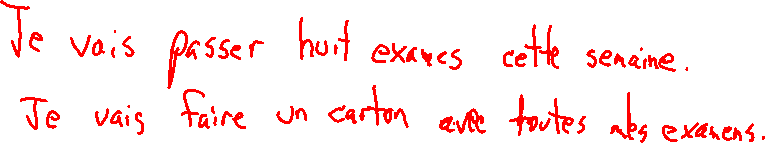 Je vais passer huit exames cette semaine.
Je vais faire un carton avec toutes mes examens.